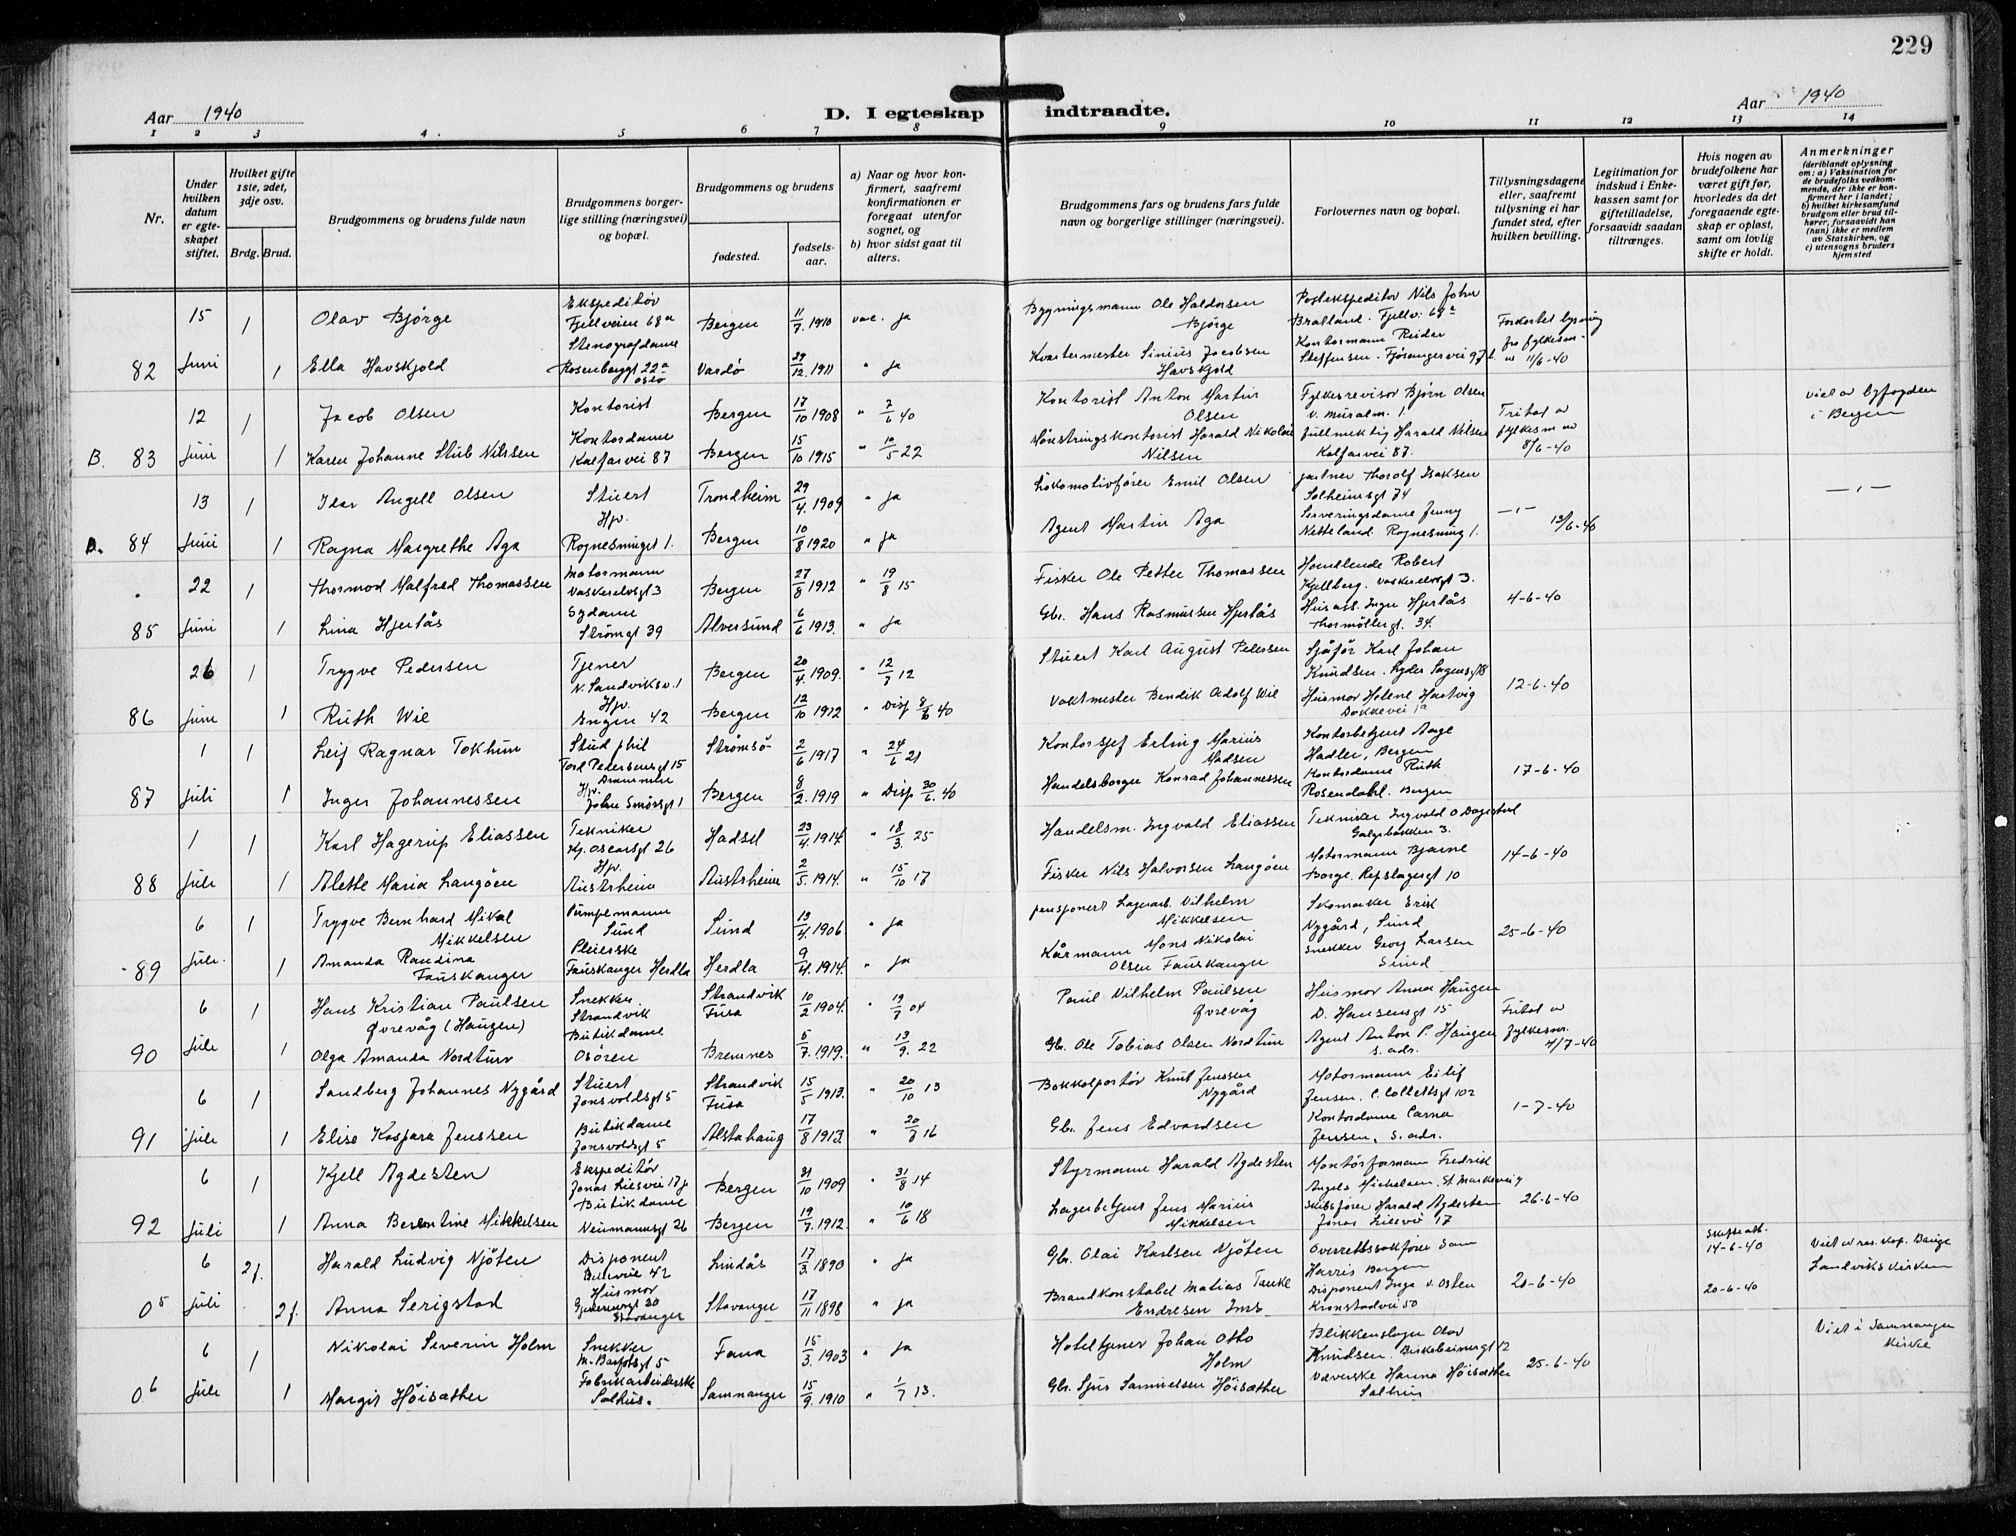 229
Aar 1940
D. I egteskap indtraadte.
Aar 1940
1 2 3 4 5 6 7 8 9 10 11 12 13 14
Nr.
Under hvilken datum er egteskapet stiftet.
Hvilket gifte 1ste, 2det, 3dje osv.
Brdg. Brud.
Brudgommens og brudens fulde navn
Brudgommens borgerlige stilling (næringsvei) og bopæl.
Brudgommens og brudens
fødested.
fødselsaar.
a) Naar og hvor konfirmert, saafremt konfirmationen er foregaat utenfor sognet, og
b) hvor sidst gaat til alters.
Brudgommens fars og brudens fars fulde navn og borgerlige stillinger (næringsvei).
Forlovernes navn og bopæl.
Tillysningsdagene eller, saafremt tillysning ei har fundet sted, efter hvilken bevilling.
Legitimation for indskud i Enkekassen samt for giftetilladelse, forsaavidt saadan tiltrænges.
Hvis nogen av brudefolkene har været gift før, hvorledes da det foregaaende egteskap er opløst, samt om lovlig skifte er holdt.
Anmerkninger
(deriblandt oplysning om: a) Vaksination for de brudefolks vedkommende, der ikke er konfirmert her i landet; b) hvilket kirkesamfund brudgom eller brud tilhører, forsaavidt han (hun) ikke er medlem av Statskirken, og c) utensogns bruders hjemsted
15 1 Olav Bjørge Ekspeditør Fjellveien 68a Bergen 11/7 1910 vac. ja Bygningsmann Ole Haldorsen Bjørge Postekspeditør Nils Johan Bratland. Fjellv. 69a Forkortet lysning
82 Juni 1 Ella Havskjold Stenografdame Rosenborggt 22a Oslo Vardø 29/12 1911 " ja Kvartermester Sinius Jacobsen Havskjold Kontormann Reidar Steffensen. Fjøsangervei 97b fra fylkesm. av 11/6-40
12 1 Jacob Olsen Kontorist Bergen 17/10 1908 " 7/6 40 Kontorist Anton Martin Olsen Fylkesrevisor Bjørn Olsen v. Muralm. 1. Fritat av viet av byfogden i Bergen
B. 83 Juni 1 Karen Johanne Stub Nilssen Kontordame Kalfarvei 87 Bergen 15/10 1915 " 10/5 22 Mønstringskontorist Harald Nikolai Nilsen Fullmektig Harald Nilsen Kalfarvei 87. fylkesm av 8/6-40
13 1 Idar Angell Olsen Stuert Trondheim 29/4. 1909 " ja Lokomotivfører Emil Olsen gartner Thorolf Isaksen Solheimsgt 74 —"—
B. 84 Juni 1 Ragna Margrethe Aga Hjv. Rognesmuget 1. Bergen 10/8 1920 " ja Agent Martin Aga Serveringsdame Jenny Netteland Rognesmug 1. —"— 13/6-40
22 1 Thormod Malfred Thomassen Motormann Vaskerelvsgt 3 Bergen 27/8 1912 " 19/8 15 Fisker Ole Petter Thomassen Handlende Robert Kjellberg. Vaskerelvsgt 3. 4-6-40
85 Juni 1 Lina Hjertås Sydame Strømgt 39 Alversund 6/6 1913. " ja Gbr. Hans Rasmussen Hjertås Husass. Inger Hjertås Thormøhlergt. 34.
26 1 Trygve Pedersen Tjener N. Sandviksv. 1 Bergen 20/4. 1909. " 12/7 12 Stuert Karl August Pedersen Sjåfør Karl Johan Knudsen. Lyder Sagensgt 18 12-6-40
86 Juni 1 Ruth Wie Hjv. Engen 42 Bergen 12/10 1912 " Disp 8/6 40 Vaktmester Bendik Adolf Wie Husmor Helene Hartvig Dokkevei 1a
1 1 Leif Ragnar Tokhun Stud phil Tord Pedersensgt 15 Drammen Strømsö 2/6 1917 " 24/6 21 Kontorsjef Erling Marius Madsen Kontorbetjent Aage Hadler, Bergen 17-6-40
87 Juli 1 Inger Johannessen Hjv. John Smørsgt 1 Bergen 8/2. 1919 " Disp 30/6. 40 Handelsborger Konrad Johannessen Kontordame Ruth Rosendahl. Bergen
1 1 Karl Hagerup Eliassen Tekniker Kg. Oscarsgt 26 Hadsel 23/4. 1914. " 18/3. 25 Handelsm. Ingvald Eliassen Tekniker Ingvald O Dagestad Galgebakken 3. 14-6-40
88 Juli 1 Alette Maria Langöen Hjv. Austrheim Austrheim 2/5. 1914. " 15/10 17 Fisker Nils Halvorsen Langöen Motormann Bjarne Borge. Repslagergt 10
6 1 Trygve Bernhard Mikal Mikkelsen Pumpemann Sund Sund 13/4. 1906 " ja pensjonert Lagerarb. Vilhelm Mikkelsen Skomaker Erik Nygård, Sund 25-6-40
89 Juli 1 Amanda Randina Fauskanger Pleierske Fauskanger Herdla Herdla 9/4. 1914. " ja Kårmann Mons Nikolai Olsen Fauskanger Snekker Georg Larsen Sund
6 1 Hans Kristian Paulsen Øvrevåg (Haugen) Snekker. Strandvik Strandvik Fusa 10/2 1904. " 19/7 04 Paul Vilhelm Paulsen Øvrevåg Husmor Anna Haugen D. Hansensgt 15 Fritat av
90 Juli 1 Olga Amanda Nordtun Butikdame Osøren Bremnes 5/7. 1919. " 13/9. 22 Gbr. Ole Tobias Olsen Nordtun Agent Anton P. Haugen s. adr. fylkesm. 4/7-40
6 1 Sandberg Johannes Nygård Stuert Jonsvoldsgt 5 Strandvik Fusa 15/5 1913. " 20/10 13 Bokkolportör Knut Jenssen Nygård Motormann Eilif Jensen. C. Collettsgt 102 1-7-40
91 Juli 1 Elise Kaspara Jenssen Butikdame Jonsvoldsgt 5 Alstahaug 17/8 1913. " 20/7 16 Gbr. Jens Edvardsen Kontordame Carna Jenssen, s. adr.
6 1 Kjell Agdesten Ekspeditør Jonas Liesvei 17 Bergen 31/10 1909 " 31/8 14 Styrmann Harald Agdesten Montörformann Fredrik Angels Michelsen. St Markevei 9
92 Juli 1 Anna Berentine Mikkelsen Butikdame Neumannsgt 26 Bergen 19/7. 1912. " 10/6 18 Lagerbetjent Jens Marius Mikkelsen Skibsfører Harald Agdesten Jonas Liesvei 17 26-6-40
6 2f. Harald Ludvig Njöten Disponent 42 Lindås 17/3. 1890 " ja Gbr. Olai Karlsen Njöten Overrettssakfører Sam Harris Bergen 20-6-40 Skifteatt. 14-6-40 Viet av res. kap. Bauge Sandvikskirken
05 Juli 2f. Anna Serigstad Husmor 30 Stavanger Stavanger 17/11 1898 " ja Brandkonstabel Matias Tanke Endresen Ims Disponent Inga v. Osten Kronstadvei 50 20-6-40
6 1 Nikolai Severin Holm Snekker M. Barfotsgt 5 Fana 15/3. 1903 " ja Hotelltjener Johan Otto Holm Blikkenslager Olav Knudsen. Birkebeinergt 12 25-6-40 Viet i Samnanger kirke
06 Juli 1 Margit Höisæther Fabrikarbeiderske Salhus. Samnanger 15/9. 1910 " 1/7 13. Gbr. Sjur Samuelsen Höisæther Væverske Hanna Höisæther Salhus